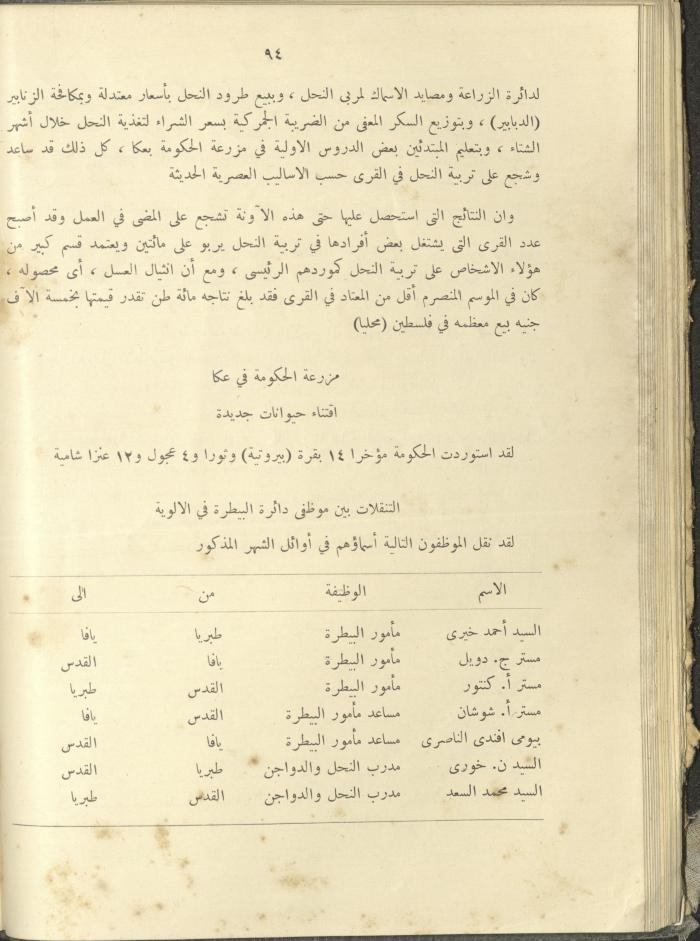 ٩٤
لدائرة الزراعة ومصايد الاسماك لمربى النحل ، وببيع طرود النحل بأسعار معتدلة وبمكافحة الزنابير
(الدبابير) ، وبتوزيع السكر المعفى من الضريبة الجمركية بسعر الشراء لتغذية النحل خلال أشهر
الشتاء ، وبتعليم المبتدئين بعض الدروس الاولية في مزرعة الحكومة بعكا ، كل ذلك قد ساعد
وشجع على تربية النحل في القرى حسب الاساليب العصرية الحديثة
وان النتائج التى استحصل عليها حتى هذه الآونة تشجع على المضى في العمل وقد أصبح
عدد القرى التى يشتغل بعض أفرادها في تربية النحل يربو على مائتين ويعتمد قسم كبير من
هؤلاء الاشخاص على تربية النحل كموردهم الرئيسى ، ومع أن انثيال العسل ، أى محصوله ،
كان في الموسم المنصرم أقل من المعتاد في القرى فقد بلغ نتاجه مائة طن تقدر قيمتها بخمسة الآف
جنيه بيع معظمه في فلسطين (محليا)
مزرعة الحكومة في عكا
اقتناء حيوانات جديدة
لقد استوردت الحكومة مؤخرا ١٤ بقرة (بيروتية) وثورا و٤ عجول و١٢ عنزا شامية
التنقلات بين موظفى دائرة البيطرة في الالوية
لقد نقل الموظفون التالية أسماؤهم في أوائل الشهر المذكور
الاسم الوظيفة من الى
السيد أحمد خيرى مأمور البيطرة طبريا يافا
مستر ج. دويل مأمور البيطرة يافا القدس
مستر أ. كنتور مأمور البيطرة القدس طبريا
مستر أ. شوشان مساعد مأمور البيطرة القدس يافا
بيومى افندى الناصرى مساعد مأمور البيطرة يافا القدس
السيد ن. خورى مدرب النحل والدواجن طبريا القدس
السيد محمد السعد مدرب النحل والدواجن القدس طبريا